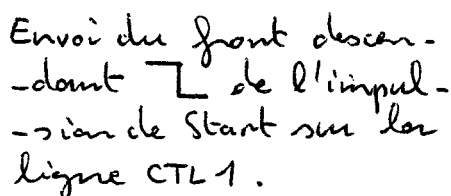 Envoi du front descen-
-dant de l'impul-
-sion de Start sur la
ligne CTL1.